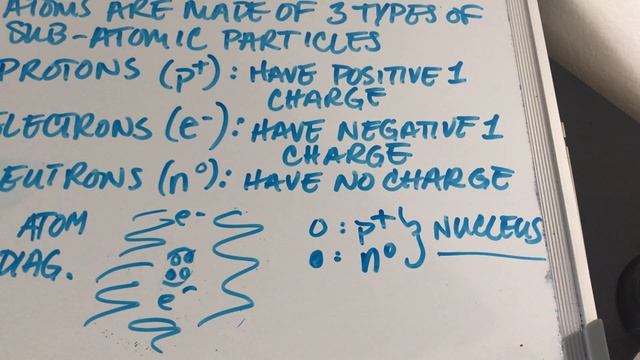 ATOMS ARE MADE OF 3 TYPES OF
SUB-ATOMIC PARTICLES
PROTONS (p+): HAVE POSITIVE 1
CHARGE
ELECTRONS (e-): HAVE NEGATIVE 1
CHARGE
NEUTRONS (n⁰): HAVE NO CHARGE
ATOM
DIAG.
e-
e-
O : p+ } NUCLEUS
● : n⁰